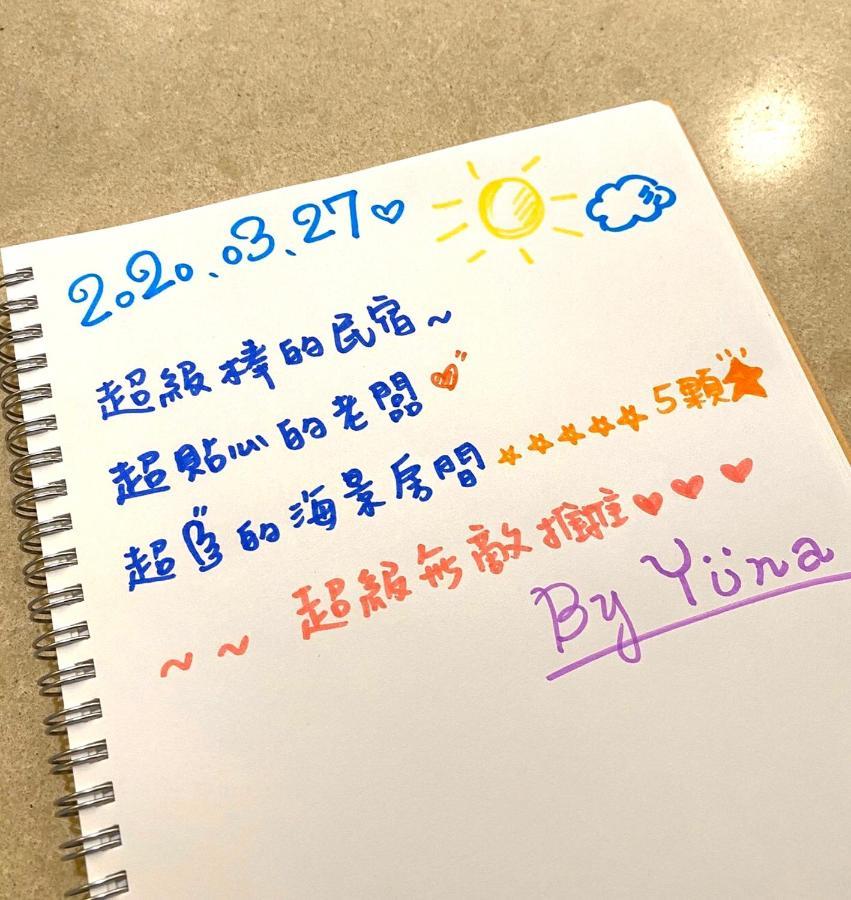 2020.03.27♡
超級棒的民宿~
超貼心的老闆♡
超 的海景房間☆☆☆☆☆5顆★
~ ~ 超級無敵 ♥♥♥
By Yüna